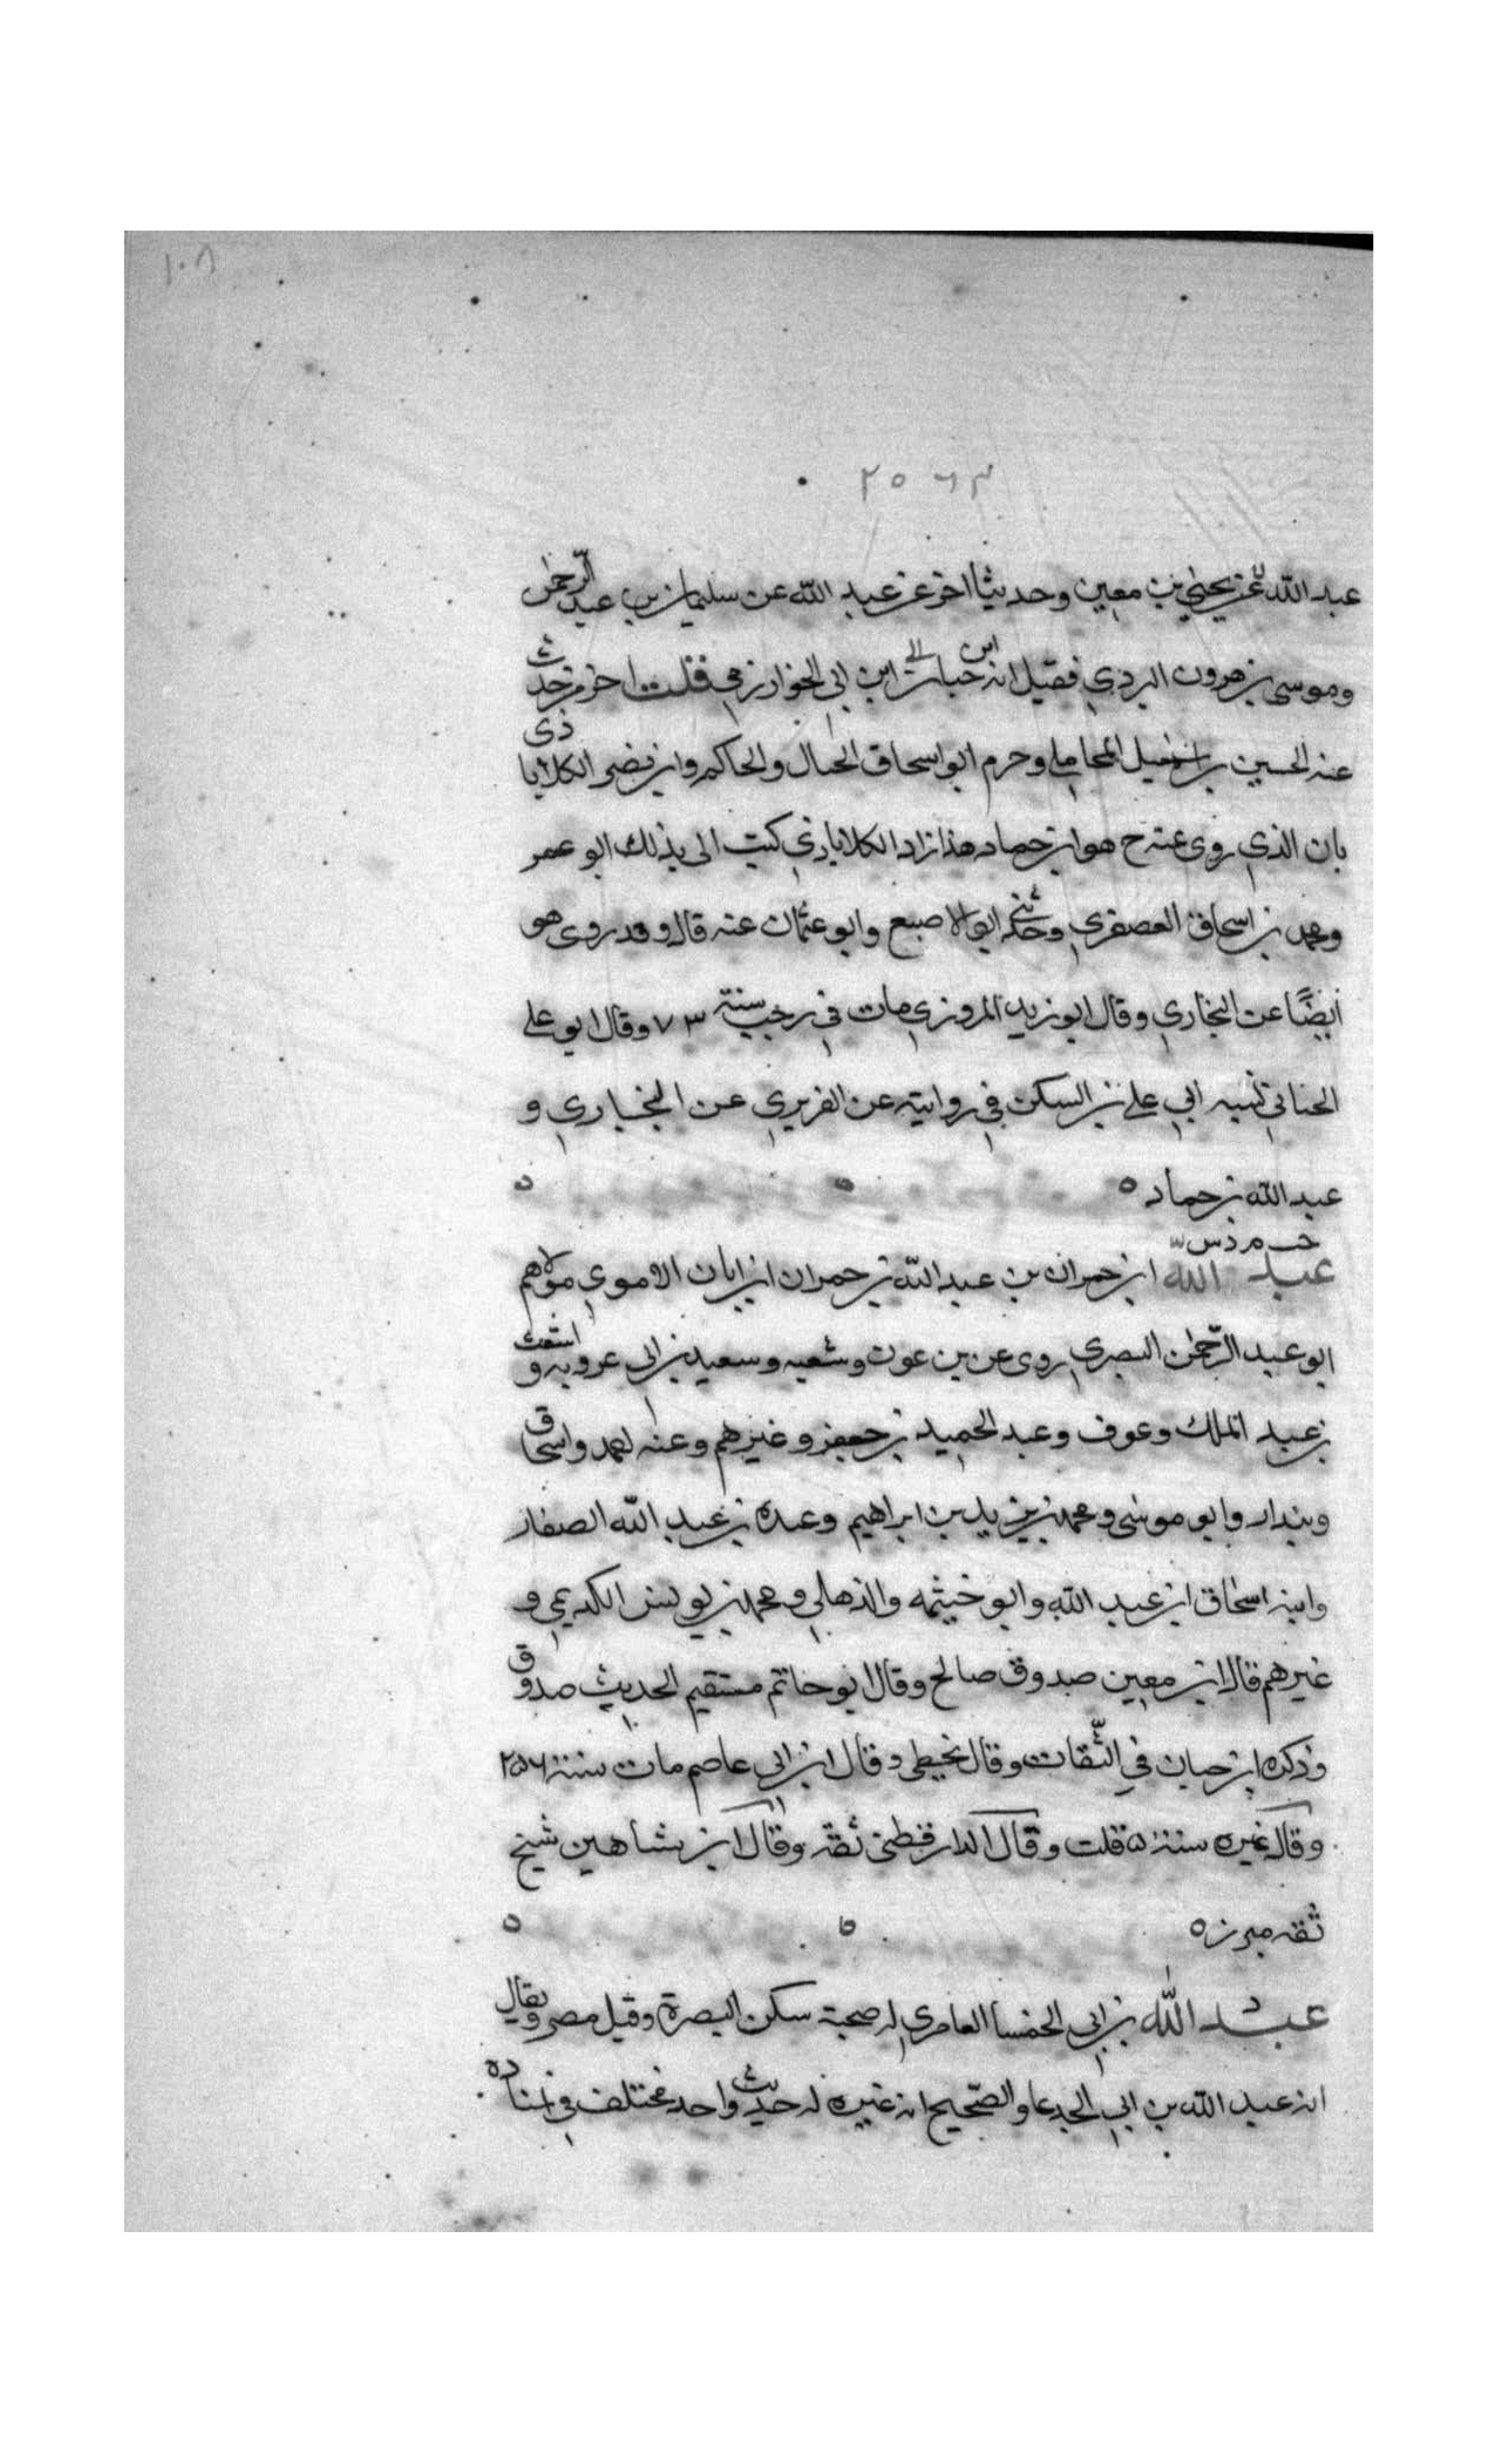 ١٠٨
٢٥٦٣
عبد الله عن يحيى بن معين وحديثا اخر عن عبد الله عن سليمان بن عبد الرحمن
وموسى بن هرون البردي فقيل انه ابن حباب الى ابن ابي الخوارزمي قلت اخر من حدث
عنه الحسين بن اسمعيل المحاملي وحرم ابو اسحاق الحبال والحاكم وابو نصر الكلاباذى
بان الذي روى عنه ح هو ابن حماد هذا زاد الكلاباذي كتب الى بذلك ابو عمر
ومحمد بن اسحاق العصفري وحكى ابو الاصبع وابو عثمان عنه قال وقد روى هو
أيضًا عن البخاري وقال ابو زيد المروزي مات في رجب سنة ٧٣ وقال ابو علي
نسبه ابي علي بن السكن في روايته عن الفربري عن البخاري و
عبد الله بن حماد ه
خت م د س
عبد الله ابن حمران بن عبد الله بن حمران ابن ابان الاموي مولاهم
ابو عبد الرحمن البصري روى عن بن عون وشعبه وسعيد بن ابى عروبه و اشعث
بن عبد الملك وعوف وعبد الحميد بن جعفر وغيرهم وعنه احمد واسحاق
وبندار وابو موسى ومحمد بن يزيد بن ابراهيم وعبده بن عبد الله الصفار
وابنه اسحاق ابن عبد الله وابو خيثمه والذهلي ومحمد بن يونس الكديمي و
غيرهم قال ابن معين صدوق صالح وقال ابو حاتم مستقيم الحديث صدوق
وذكره ابن حبان في الثقات وقال يخطى وقال ابن ابي عاصم مات سنة ٢٥٦
وقال غيره سنة ٥ قلت وقال الدارقطني ثقة وقال ابن شاهين شيخ
ثقه مبرز ه
عبد الله بن ابي الحمسا العامري له صحبة سكن البصرة وقيل مصر ويقال
انه عبد الله بن ابي الجدعا والصحيح انه غيره له حديث واحد مختلف في اسناده